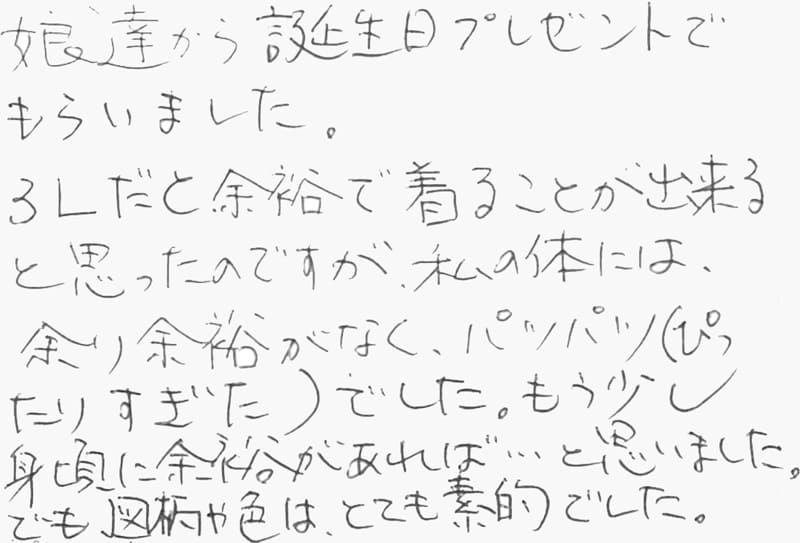 娘達から誕生日プレゼントで
もらいました。
3Lだと余裕で着ることが出来る
と思ったのですが、私の体には、
余り余裕がなく、パツパツ(ぴっ
たりすぎた)でした。もう少し
身頃に余裕があれば…と思いました。
でも図柄や色は、とても素的でした。